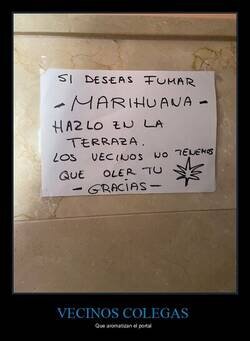 SI DESEAS FUMAR
- MARIHUANA -
HAZLO EN LA
TERRAZA.
LOS VECINOS NO TENEMOS
QUE OLER TU
- GRACIAS -
VECINOS COLEGAS
Que aromatizan el portal